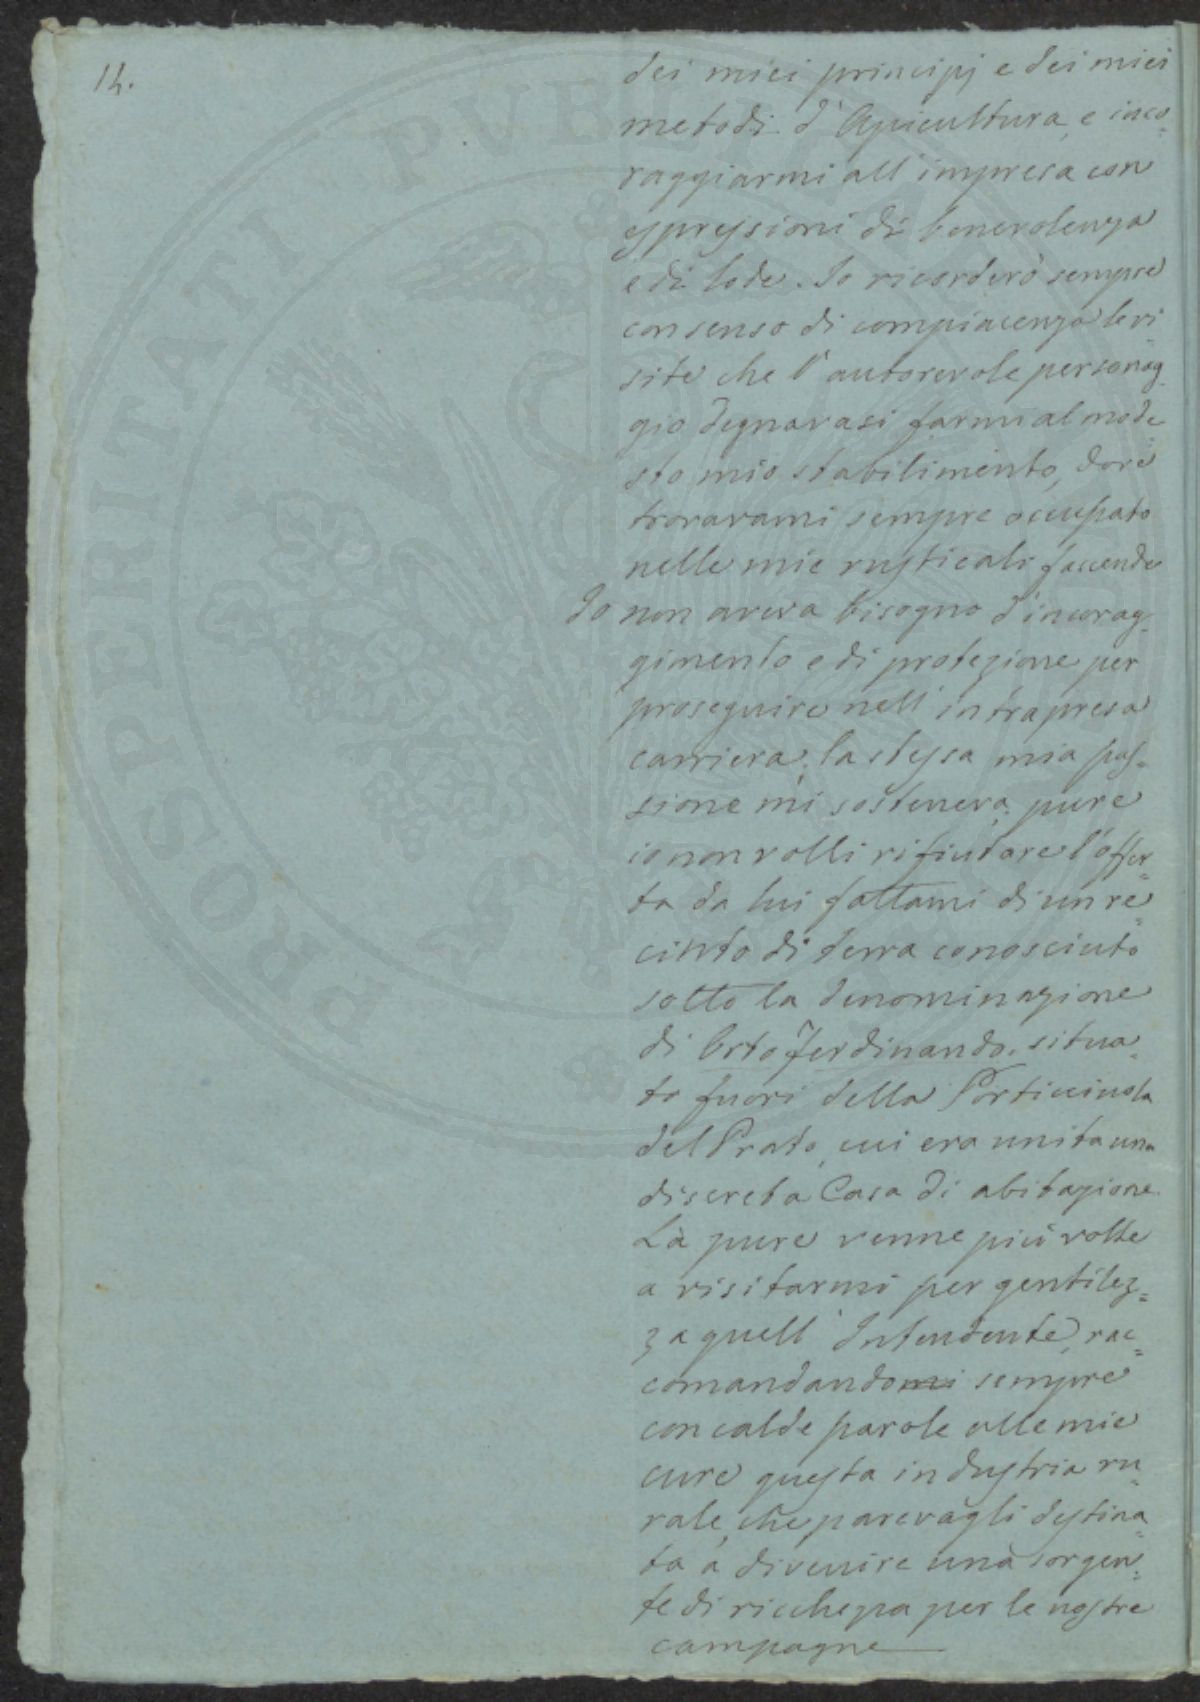 14.
dei miei principj e dei miei
metodi d'Apicultura, e inco-
raggiarmi all'impresa con
espressioni di benevolenza
e di lode. Io ricorderò sempre
con senso di compiacenza le vi
site che l'autorevole personag-
gio degnavasi farmi al mode=
sto mio stabilimento, dove
trovavami sempre occupato
nelle mie rusticali faccende
Io non aveva bisogno d'incorag-
gimento e di protezione per
proseguire nell'intrapresa
carriera; la stessa mia pas-
sione mi sosteneva: pure
io non volli rifiutare l'offer=
ta da lui fattami di un re=
cinto di terra conosciuto
sotto la denominazione
di Orto Ferdinando, situa=
to fuori della Porticciuola
del Prato, cui era unita una
discreta Casa di abitazione.
Là pure venne più volte
a visitarmi per gentilez=
za quell'Intendente, rac=
comandandomi sempre
con calde parole alle mie
cure questa industria ru=
rale, che parevagli destina=
ta a divenire una sorgen=
te di ricchezza per le nostre
campagne
PROSPERITATI PVBLICAE